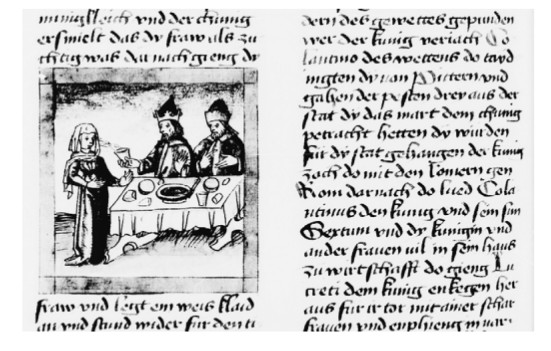 minigkleich vnd der chunig
ersmielt das dy fraw als zu
chtig was dar nach gieng dy
fraw vnd legt ein weis klaid
an vnd stund wider für den ti
dern des gewettes gepunden
wer der kunig veriach Co
lantino des wettens do tayd
ingten dy von vnd
gaben der pesten drey aus der
stat dy das mart dem chunig
petracht hetten dy wurden
für dy stat gehangen der kunig
zoch do mit den Romern gen
Rom darnach do lued Cola
ntinus den kunig vnd sein sun
Sextum vnd dy kunigin vnd
ander frauen vil in sein haus
zu wirtschafft do gieng Lu
creti dem kunig enkegen her
aus für ir tor mit ainer schar
frauen vnd enphieng in